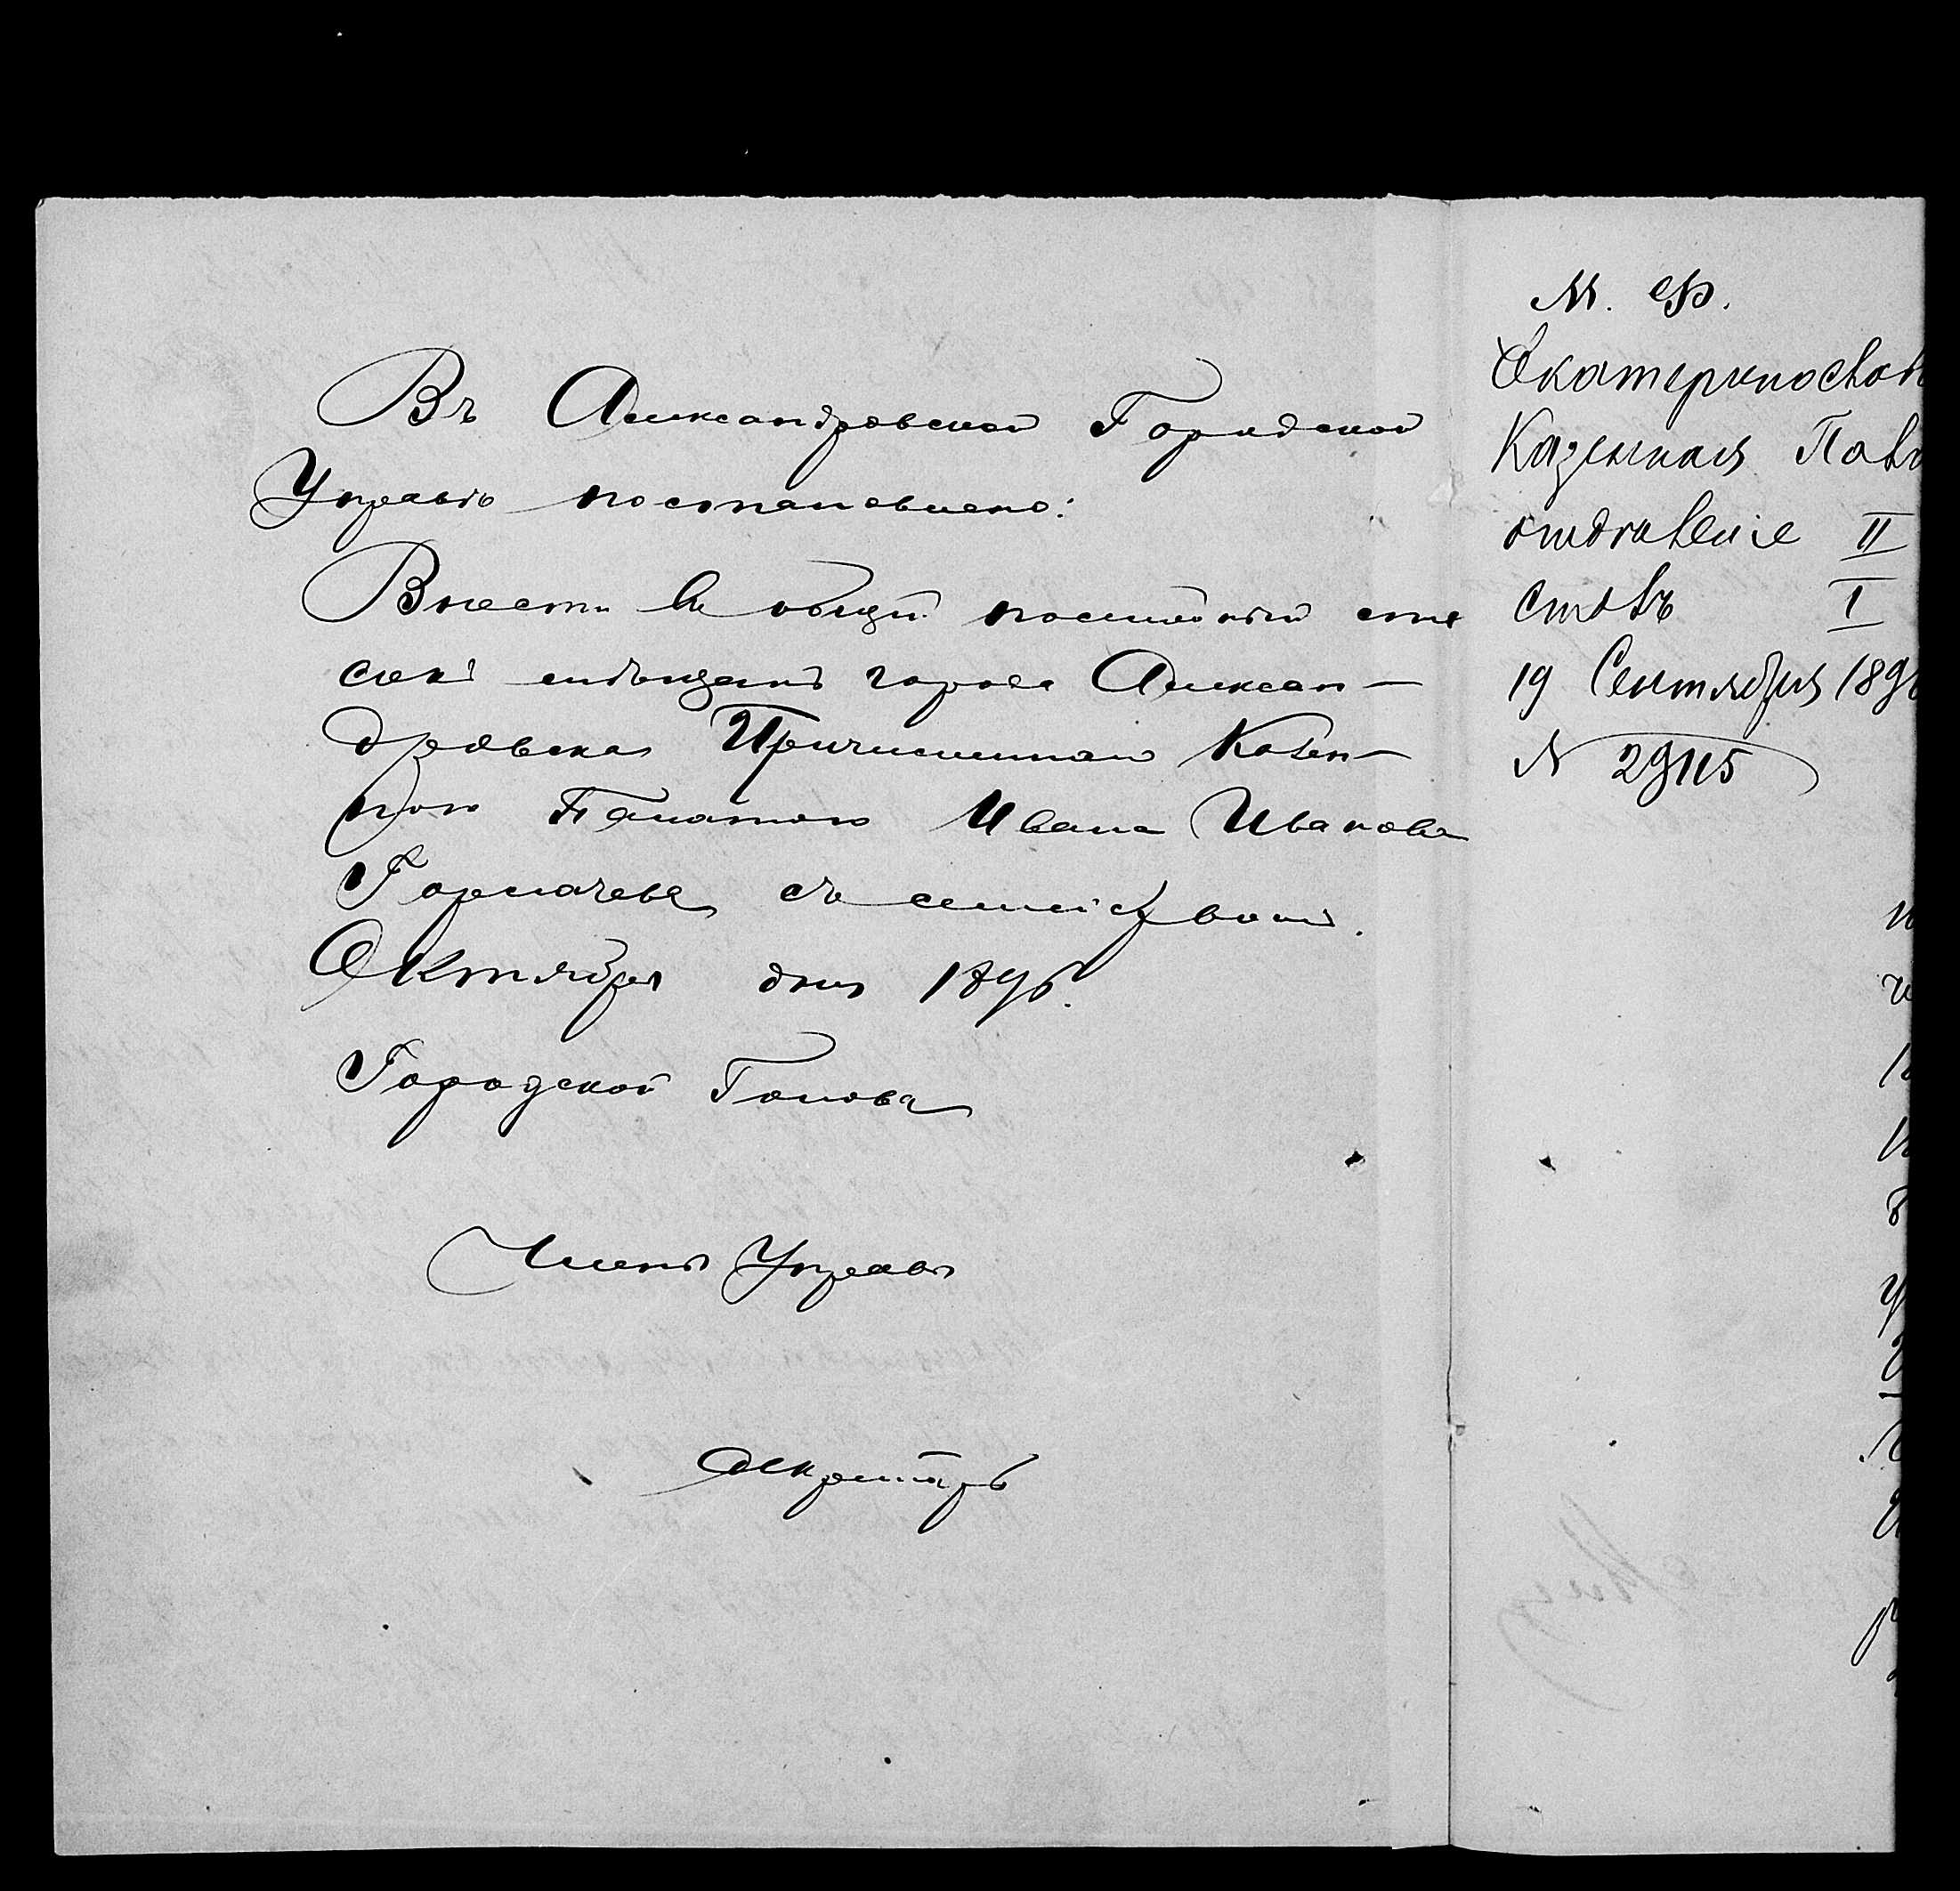 Въ Александровской Городской
Управѣ постановлено:
Внести въ общій посемейный спи
сокъ мѣщанъ города Алексан-
дровска Причисленнаго Казен-
ною Палатою Ивана Иванова
Гормачева съ семействомъ.
Октября дня 1896.
Городской Голова
Членъ Управы
Секретарь
М. Ф.
Екатеринослав
Казенная Пала
отдѣленіе II
столъ I
19 Сентября 189
N 29115